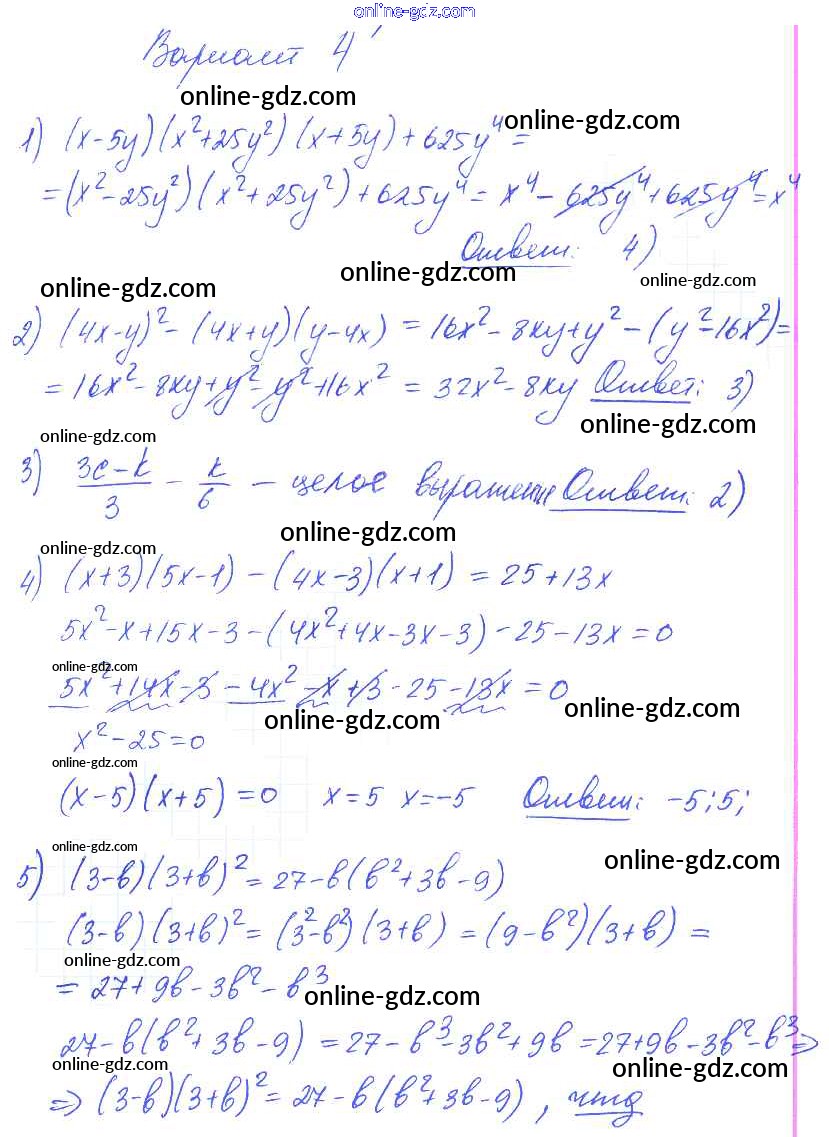 online-gdz.com
Вариант 4
online-gdz.com
1) (x-5y)(x²+25y²)(x+5y)+625y⁴=
online-gdz.com
=(x²-25y²)(x²+25y²)+625y⁴=x⁴-625y⁴+625y⁴=x⁴
Ответ: 4)
online-gdz.com
online-gdz.com
online-gdz.com
2) (4x-y)²-(4x+y)(y-4x)=16x²-8xy+y²-(y²-16x²)=
=16x²-8xy+y²-y²+16x²=32x²-8xy Ответ: 3)
online-gdz.com
online-gdz.com
3) (3c-k)/3 - k/6 - целое выражение Ответ: 2)
online-gdz.com
online-gdz.com
4) (x+3)(5x-1)-(4x-3)(x+1)=25+13x
5x²-x+15x-3-(4x²+4x-3x-3)-25-13x=0
online-gdz.com
5x²+14x-3-4x²-x+3-25-13x=0
online-gdz.com
online-gdz.com
x²-25=0
online-gdz.com
(x-5)(x+5)=0 x=5 x=-5 Ответ: -5;5;
online-gdz.com
online-gdz.com
5) (3-b)(3+b)²=27-b(b²+3b-9)
(3-b)(3+b)²=(3²-b²)(3+b)=(9-b²)(3+b)=
online-gdz.com
=27+9b-3b²-b³
online-gdz.com
27-b(b²+3b-9)=27-b³-3b²+9b=27+9b-3b²-b³⇒
online-gdz.com
online-gdz.com
⇒(3-b)(3+b)²=27-b(b²+3b-9), чтд